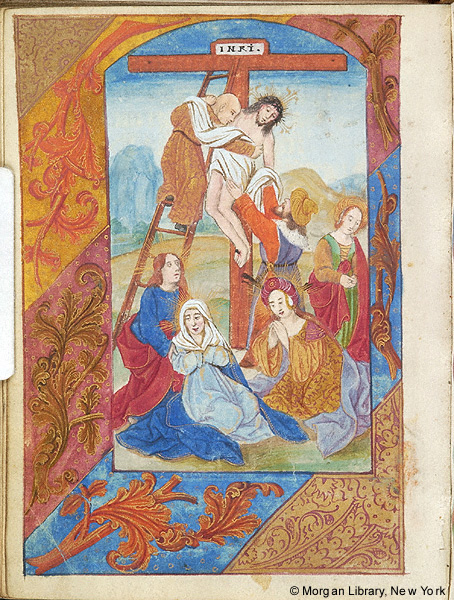 INRI.
© Morgan Library, New York